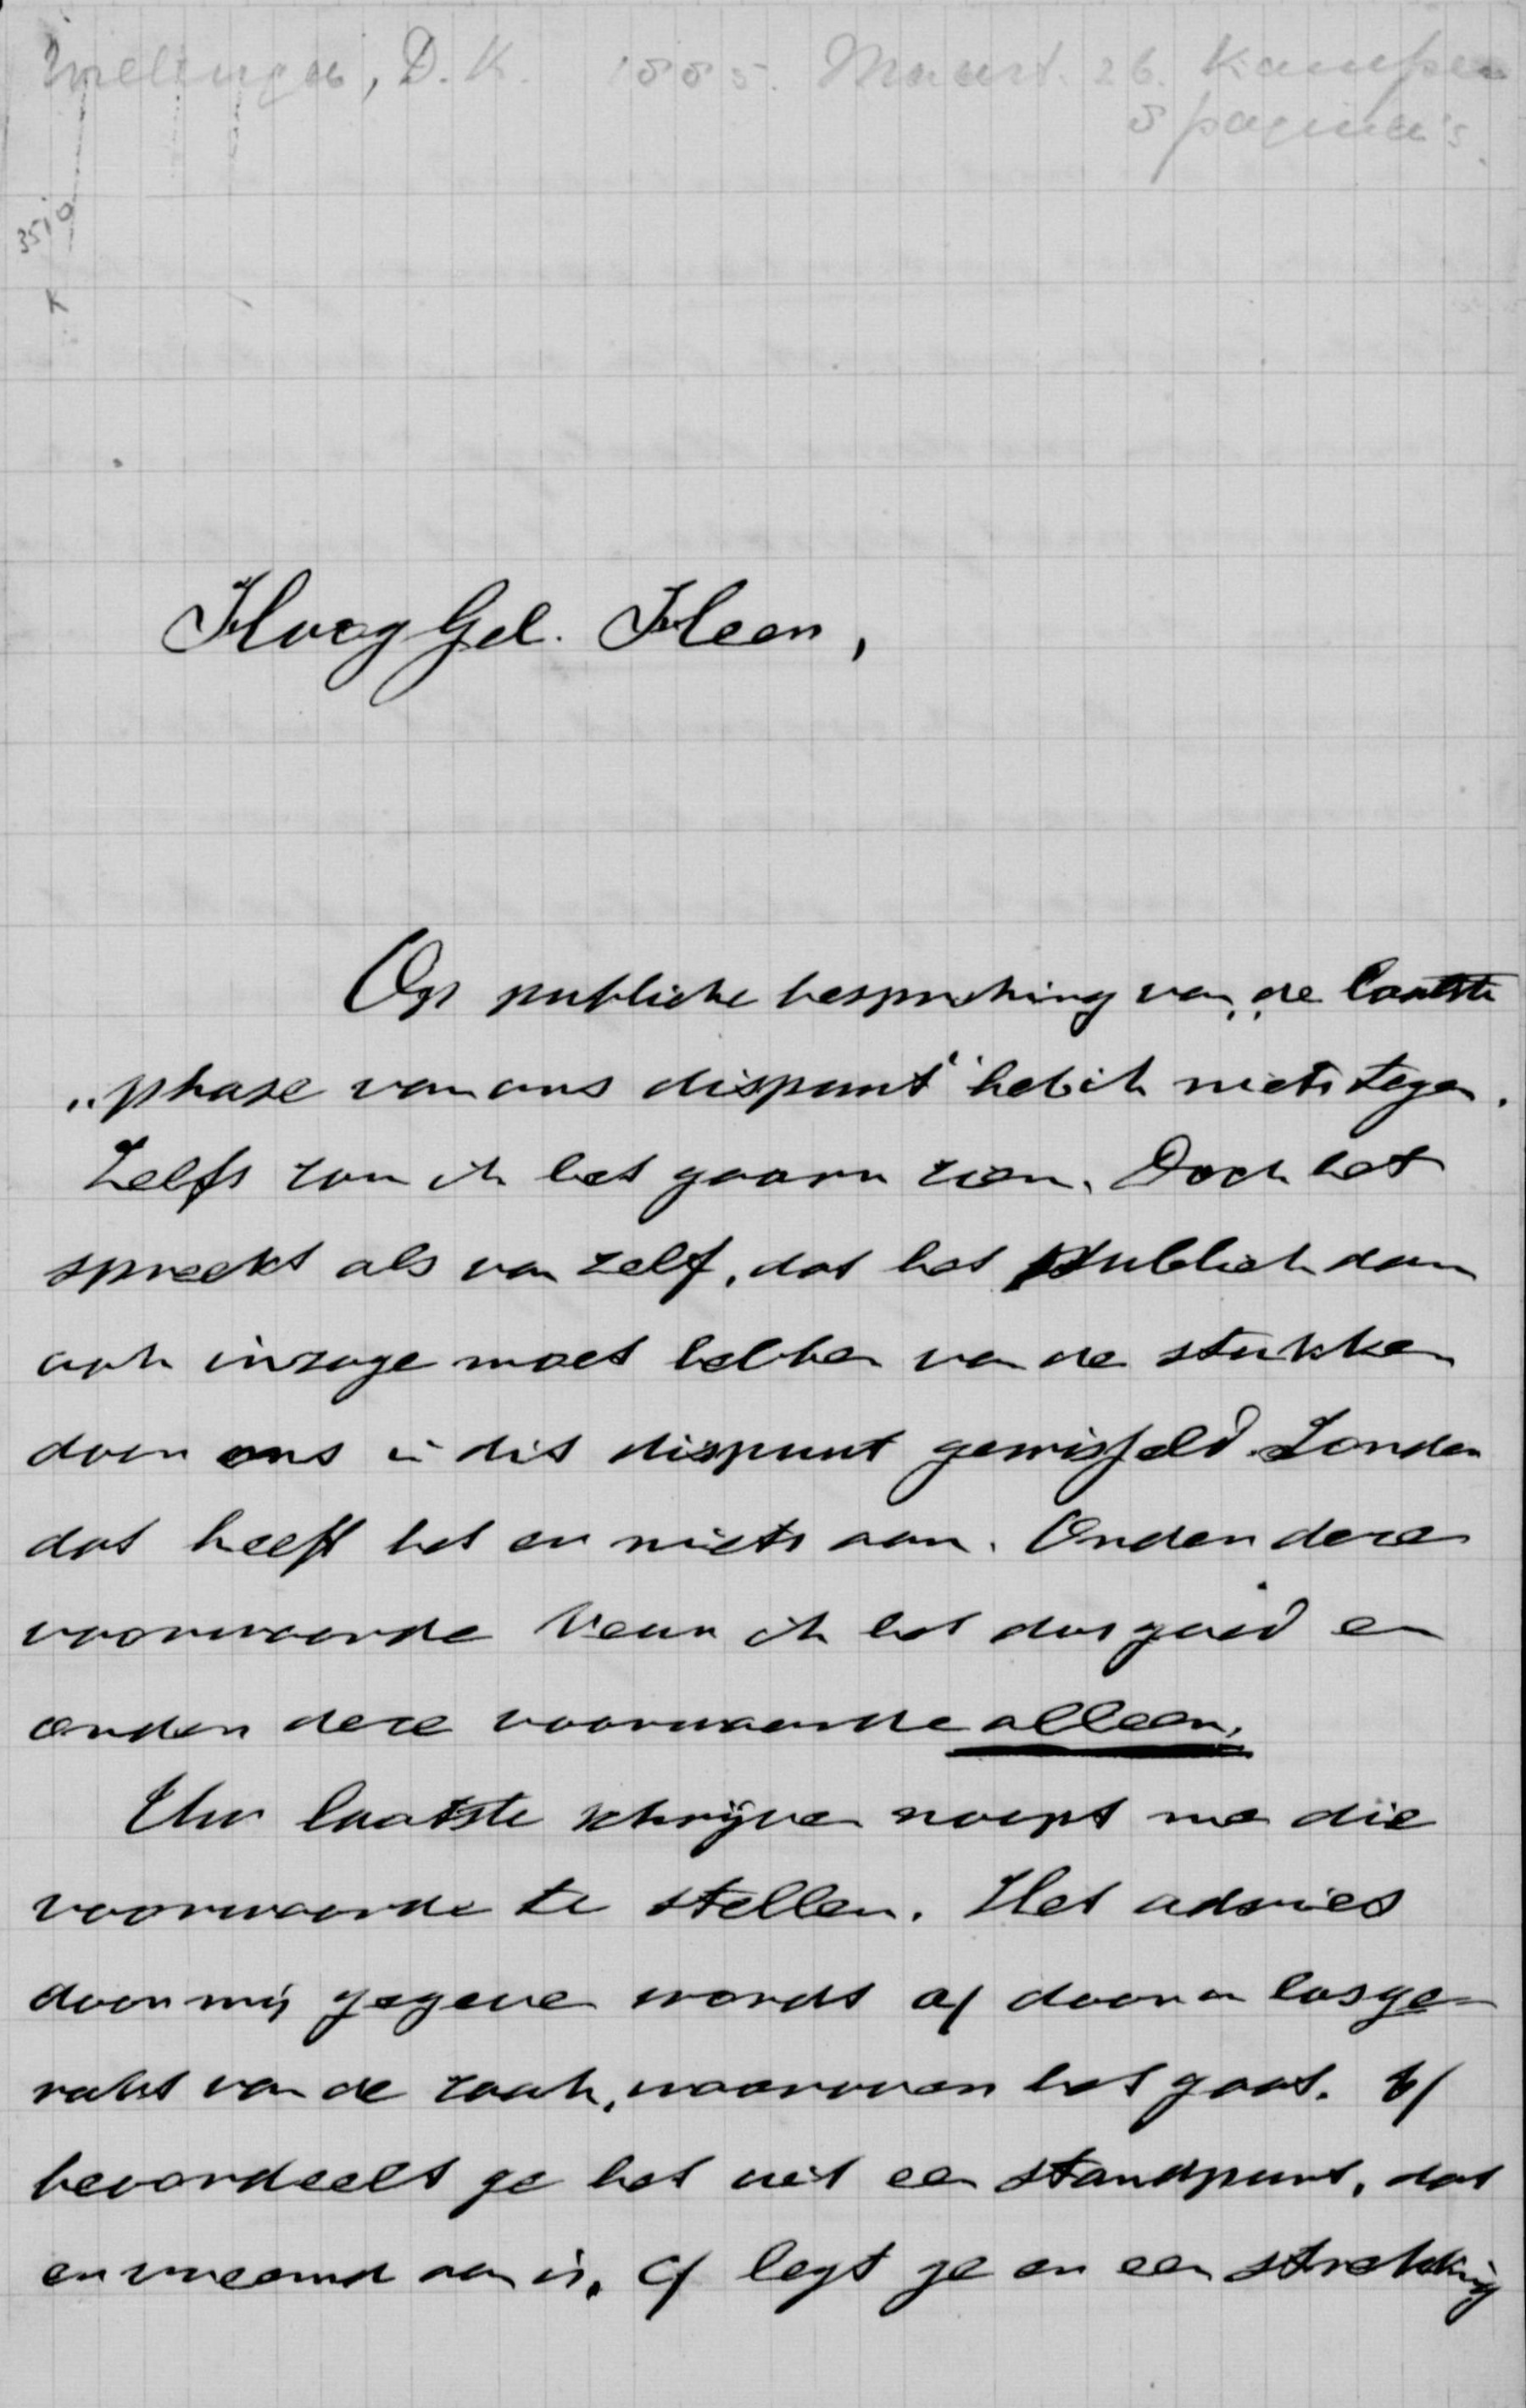 Wielenga, D.K. 1885. Maart. 26. Kampen
8 pagina's.
3510
K
HoogGel. Heer,
Op publieke bespreking van „de laatste
„phase van ons dispuut" heb ik niets tegen.
Zelfs zou ik het gaarn zien. Doch het
spreekt als van zelf, dat het publiek dan
ook inzage moet hebben van de stukken
door ons in dit dispuut gewisseld. Zonder
dat heeft het er niets aan. Onder deze
voorwaarde keur ik het dus goed en
onder deze voorwaarde alleen.
Uw laatste schrijven noopt me die
voorwaarde te stellen. Het advies
door mij gegeven wordt a/ door u losge-
rukt van de zaak, waarover het gaat. b/
beoordeelt ge het uit een standpunt, dat
er vreemd aan is, c/ legt ge er een strekking